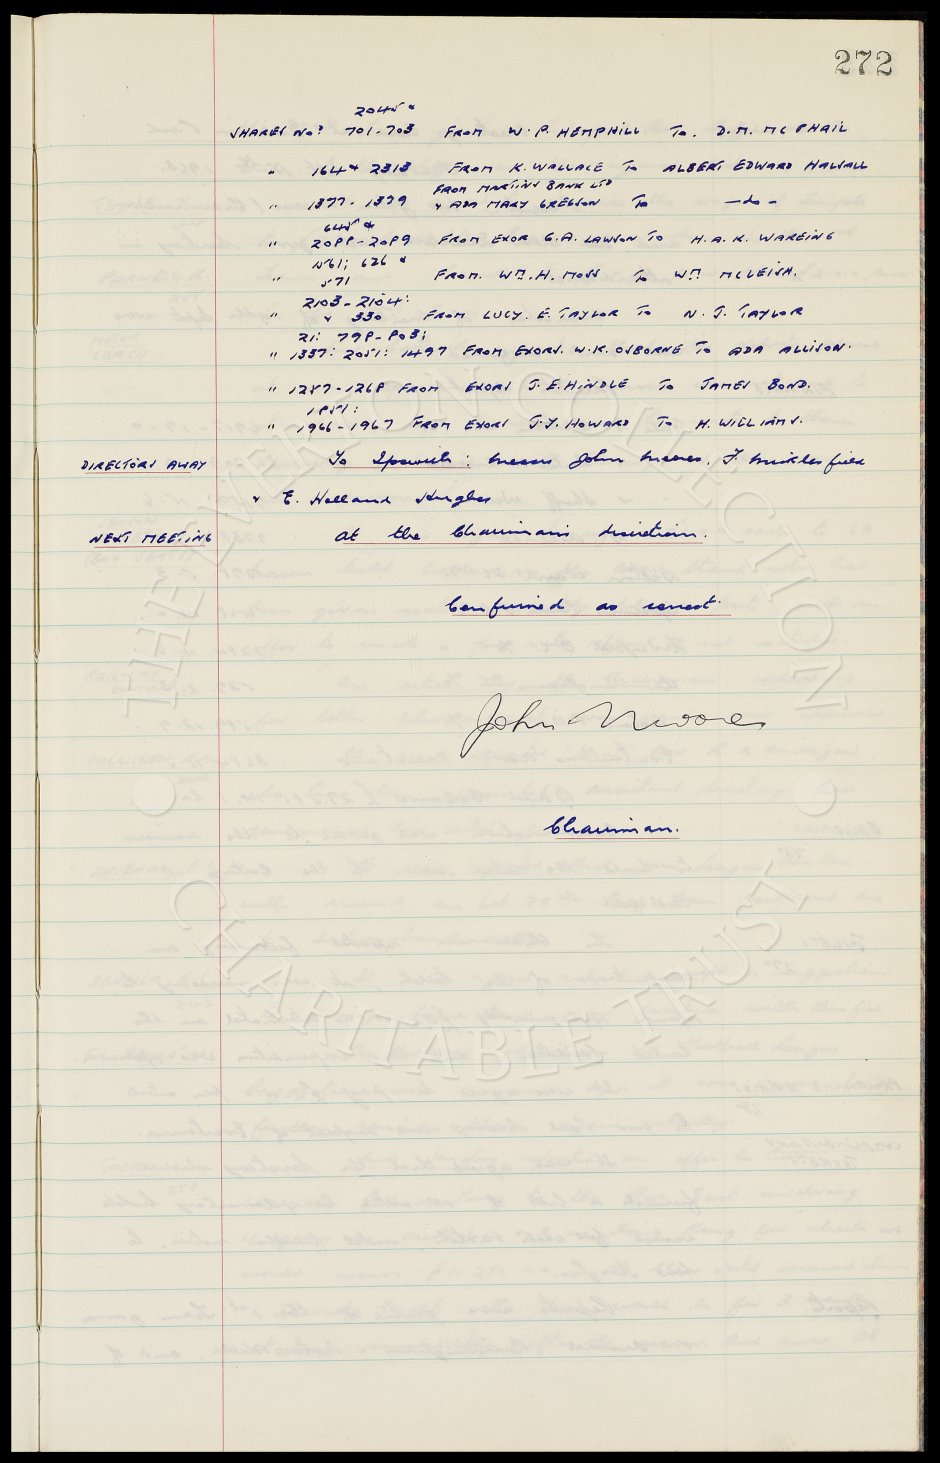 272
2045 &
SHARES Nos 701-703 FROM W. P. HEMPHILL To. D. M. MCPHAIL
" 164 & 2313 FROM K. WALLACE To ALBERT EDWARD HALSALL
FROM MARTINS BANK LTD
" 1377 - 1379 & ADA MARY GREGSON To —do—
645 &
" 2088-2089 FROM EXOR G.A. LAWSON To H. A. K. WAREING
561; 626 &
" 571 FROM. WM. H. MOSS To WM MCLEISH.
2103-2104:
" & 330 FROM LUCY. E. TAYLOR To N. J. TAYLOR
21: 798-803;
" 1337: 2051: 1497 FROM EXORS. W. K. OSBORNE To ADA ALLISON.
" 1267-1268 FROM EXORS J. E. HINDLE To JAMES BOND.
1851:
" 1966-1967 FROM EXORS J. Y. HOWARD To H. WILLIAMS.
DIRECTORS AWAY To Ipswich: Messrs John Moores, F. Micklesfield
& E. Holland Hughes
NEXT MEETING At the Chairman's discretion.
Confirmed as correct.
John Moores
Chairman.
THE EVERTON COLLECTION
CHARITABLE TRUST